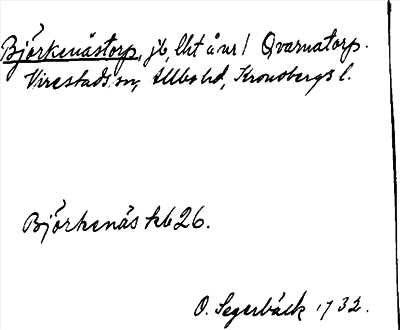 Björkenästorp, jb, lht å nr 1 Qvarnatorp.
Virestads sn, Allbo hd, Kronobergs l.
Björkenäs hb 26.
O. Segerbäck 1732.